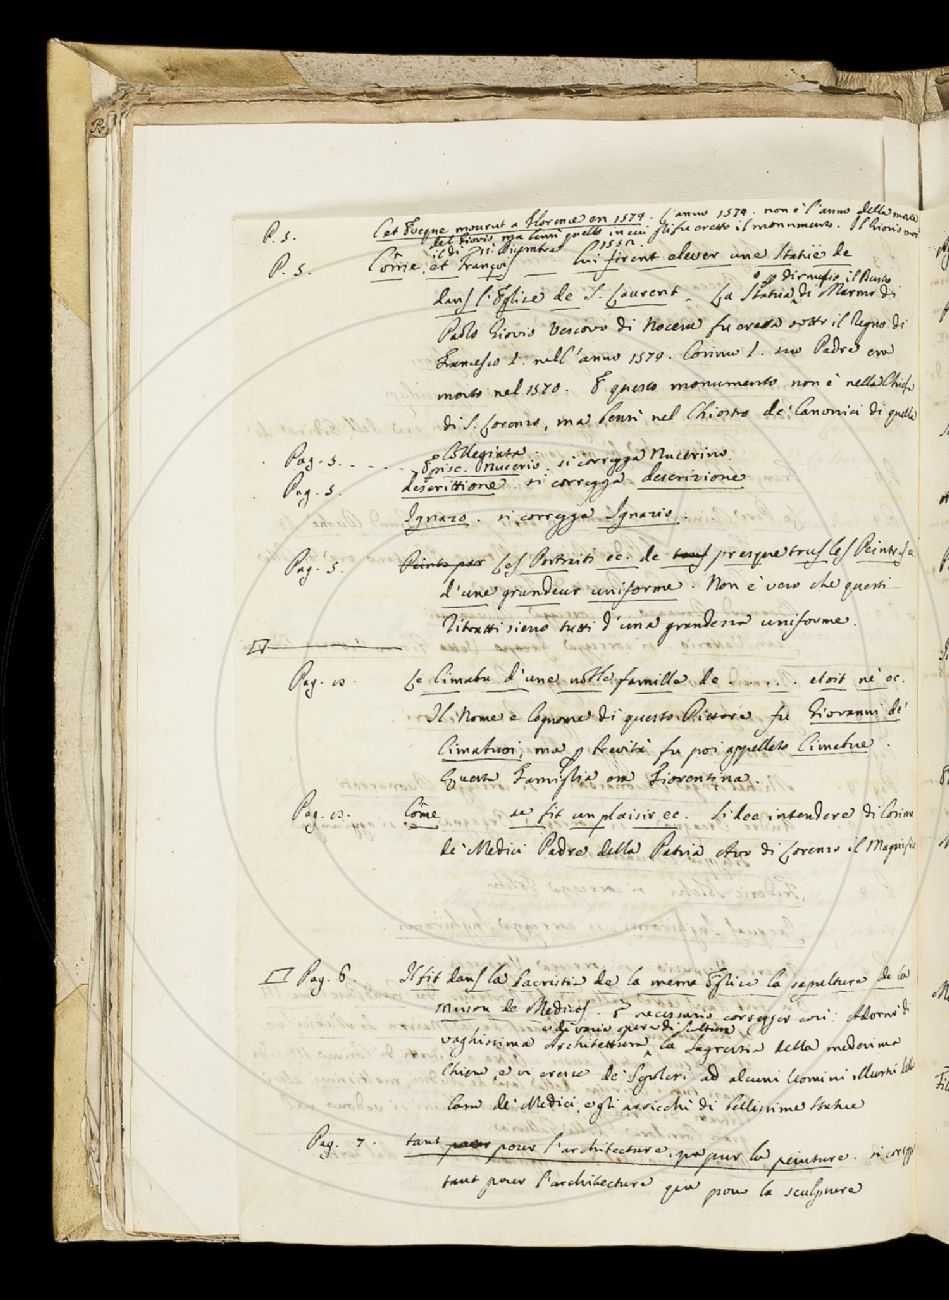 P. 5. Cet Eveque mourut a Florence en 1574. L'anno 1574. non è l'anno della morte
del Giovio, ma bensi quello in cui gli fu eretto il monumento. Il Giovio morì
il di 11. Dicembre 1552.
P. 5. Côme, et François — lui firent elever une Statüe de
dans l'Eglise de S. Laurent. La Statua di Marmo di
Paolo Giovio Vescovo di Nocera fu eretta sotto il Regno di
Francesco I. nell'anno 1574. Cosimo I. suo Padre era
morto nel 1570. E questo monumento non è nella Chiesa
di S. Lorenzo, ma bensi nel Chiostro de' Canonici di quella
Collegiata.
Pag. 5. - - - - Episc. Nucerio. si corregga Nucerino.
Pag. 5. descrittione. si corregga descrizione
Ignazo. si corregga Ignazio.
Pag. 5. Peints par Les Portraits ec. de tous presque tous les Peintres
d'une grandeur uniforme. Non è vero che questi
Ritratti sieno tutti d'una grandezza uniforme.
Pag. Le Cimabu d'une noble famille de . . . . . etoit né ec.
Il Nome e Cognome di questo Pittore fu Giovanni de'
Cimabuoi, ma p brevità fu poi appellato Cimabue.
Questa Famiglia era Fiorentina.
Pag. Côme se fit un plaisir ec. Si dee intendere di Cosimo
de' Medici Padre della Patria Avo di Lorenzo il Magnifico
Pag. 6. Il fit dans la Sacristie de la meme Eglise la sepulture de la
maison de Medicis. E necessario correggere così: Adornò di
e di varie opere di scultura
vaghissima Architettura la Sagrestia della medesima
Chiesa e vi eresse de' Sepolcri ad alcuni Uomini illustri della
Casa de' Medici, e gli arricchì di bellissime Statue
Pag. 7. tant pour pour l'architecture, que pour la peinture. si corregga
tant pour l'architecture que pour la sculpture